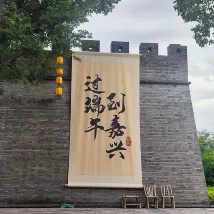 到嘉兴
过端午